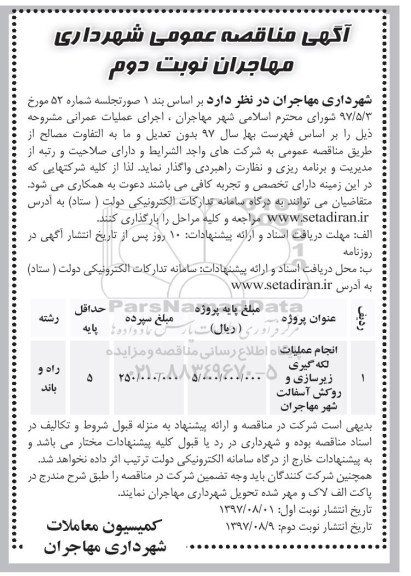 آگهی مناقصه عمومی شهرداری
مهاجران نوبت دوم
شهرداری مهاجران در نظر دارد بر اساس بند ۱ صورتجلسه شماره ۵۲ مورخ
۹۷/۵/۳ شورای محترم اسلامی شهر مهاجران ، اجرای عملیات عمرانی مشروحه
ذیل را بر اساس فهرست بها سال ۹۷ بدون تعدیل و ما به التفاوت مصالح از
طریق مناقصه عمومی به شرکت های واجد الشرایط و دارای صلاحیت و رتبه از
مدیریت و برنامه ریزی و نظارت راهبردی واگذار نماید. لذا از کلیه شرکتهایی که
در این زمینه دارای تخصص و تجربه کافی می باشند دعوت به همکاری می شود.
متقاضیان می توانند به درگاه سامانه تدارکات الکترونیکی دولت ( ستاد) به آدرس
www.setadiran.ir مراجعه و کلیه مراحل را بارگذاری کنند.
الف: مهلت دریافت اسناد و ارائه پیشنهادات: ۱۰ روز پس از تاریخ انتشار آگهی در
روزنامه
ب: محل دریافت اسناد و ارائه پیشنهادات: سامانه تدارکات الکترونیکی دولت ( ستاد)
به آدرس www.setadiran.ir
ردیف عنوان پروژه مبلغ پایه پروژه ( ریال) مبلغ سپرده حداقل پایه رشته
۱ انجام عملیات لکه گیری زیرسازی و روکش آسفالت شهر مهاجران ۵/۰۰۰/۰۰۰/۰۰۰ ۲۵۰/۰۰۰/۰۰۰ ۵ راه و باند
ParsNamadData
پایگاه اطلاع رسانی مناقصه و مزایده
۰۲۱-۸۸۳۴۹۶۷۰-۵
بدیهی است شرکت در مناقصه و ارائه پیشنهاد به منزله قبول شروط و تکالیف در
اسناد مناقصه بوده و شهرداری در رد یا قبول کلیه پیشنهادات مختار می باشد و
به پیشنهادات خارج از درگاه سامانه الکترونیکی دولت ترتیب اثر داده نخواهد شد.
همچنین شرکت کنندگان باید وجه تضمین شرکت در مناقصه را طبق شرح مندرج در
پاکت الف لاک و مهر شده تحویل شهرداری مهاجران نمایند.
تاریخ انتشار نوبت اول: ۱۳۹۷/۰۸/۰۱
تاریخ انتشار نوبت دوم: ۱۳۹۷/۰۸/۹
کمیسیون معاملات
شهرداری مهاجران